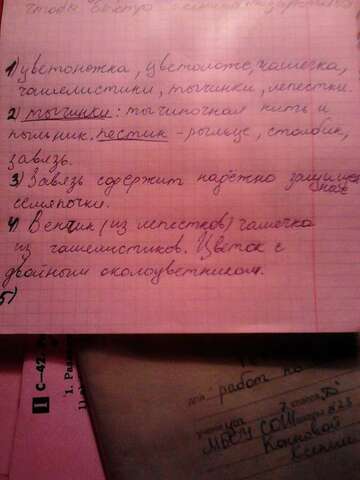 чтобы быстро
1) цветоножка, цветоложе, чашечка,
чашелистики, тычинки, лепестки.
2) тычинки: тычиночная нить и
пыльник. пестик - рыльце, столбик,
завязь.
3) Завязь содержит надёжно защищён
ные
семяпочки.
4) Венчик (из лепестков) чашечка
из чашелистиков. Цветок с
двойным околоцветником.
5)
I С-42.
1. Ра
работ по
7 класса
МБОУ СОШ №23
Ксении